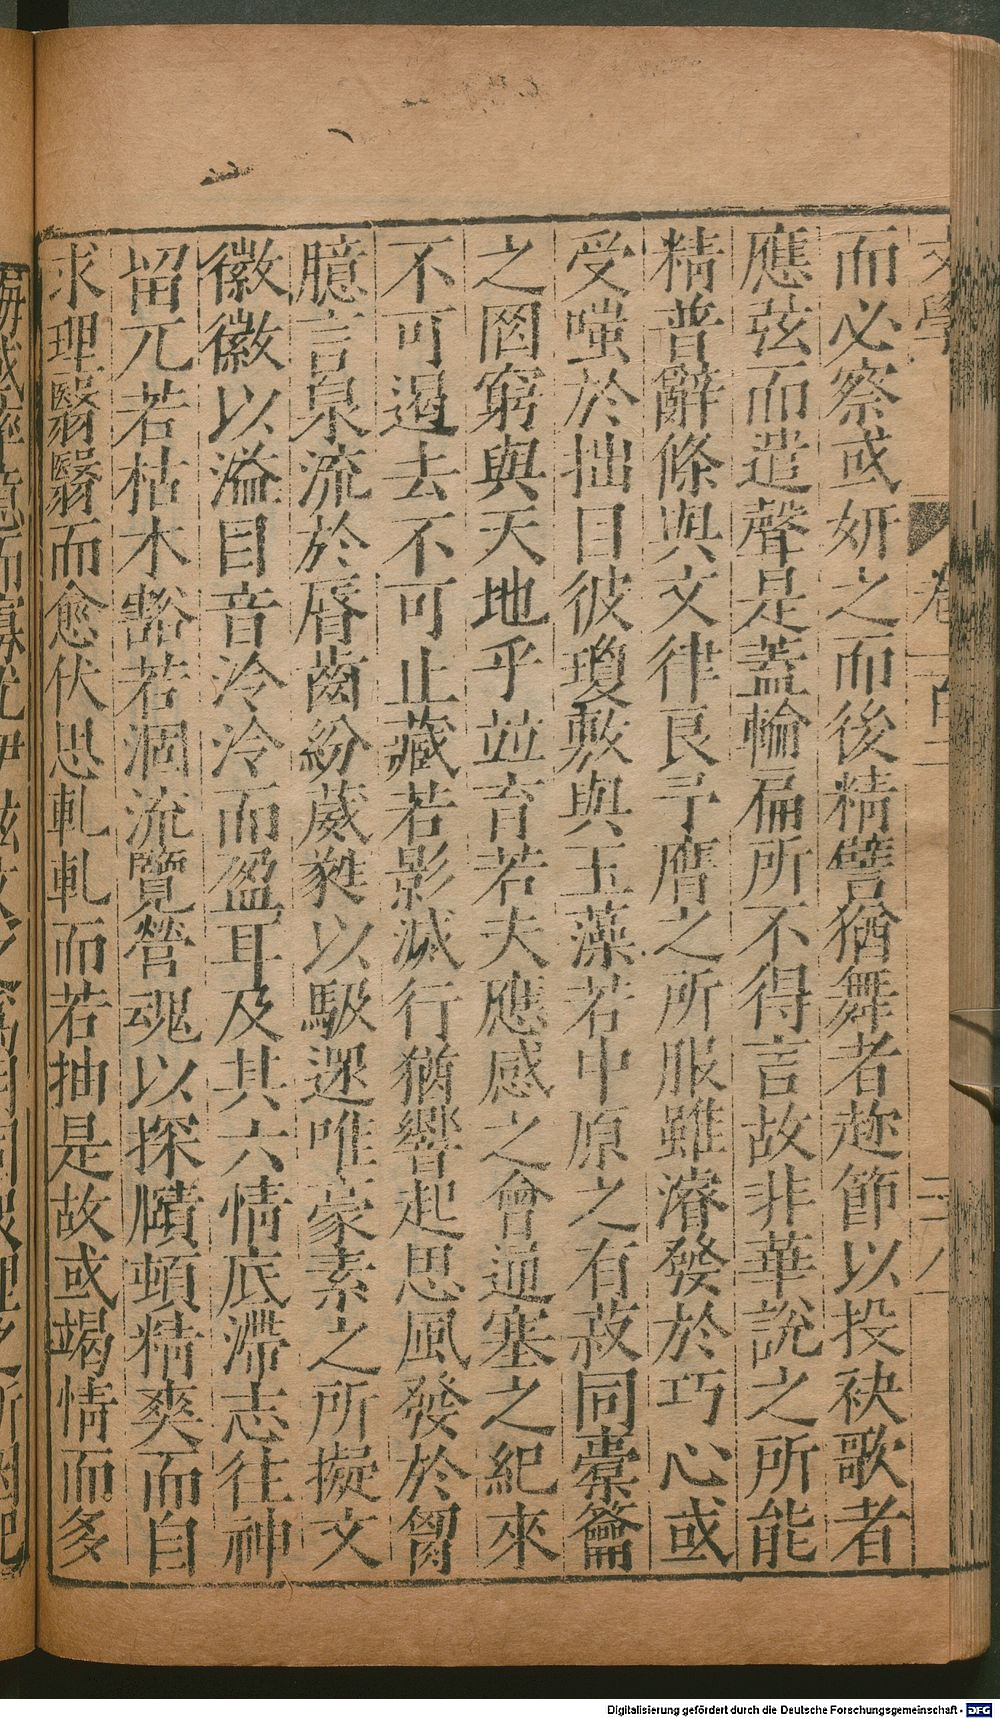 文學
卷一百一
而必察或妍之而後精譬猶舞者趂節以投袂歌者
應弦而遣聲是蓋輪扁所不得言故非華說之所能
精普辭條與文律良予膺之所服雖濬發於巧心或
受嗤於拙目彼瓊敷與玉藻若中原之有菽同橐籥
之罔窮與天地乎並育若夫應感之會通塞之紀來
不可遏去不可止藏若影滅行猶響起思風發於胷
臆言泉流於唇齒紛葳蕤以馺遝唯豪素之所擬文
徽徽以溢目音泠泠而盈耳及其六情底滯志往神
留兀若枯木豁若涸流覽營魂以探賾頓精爽而自
求理翳翳而愈伏思軋軋而若抽是故或竭情而多
Digitalisierung gefördert durch die Deutsche Forschungsgemeinschaft - DFG